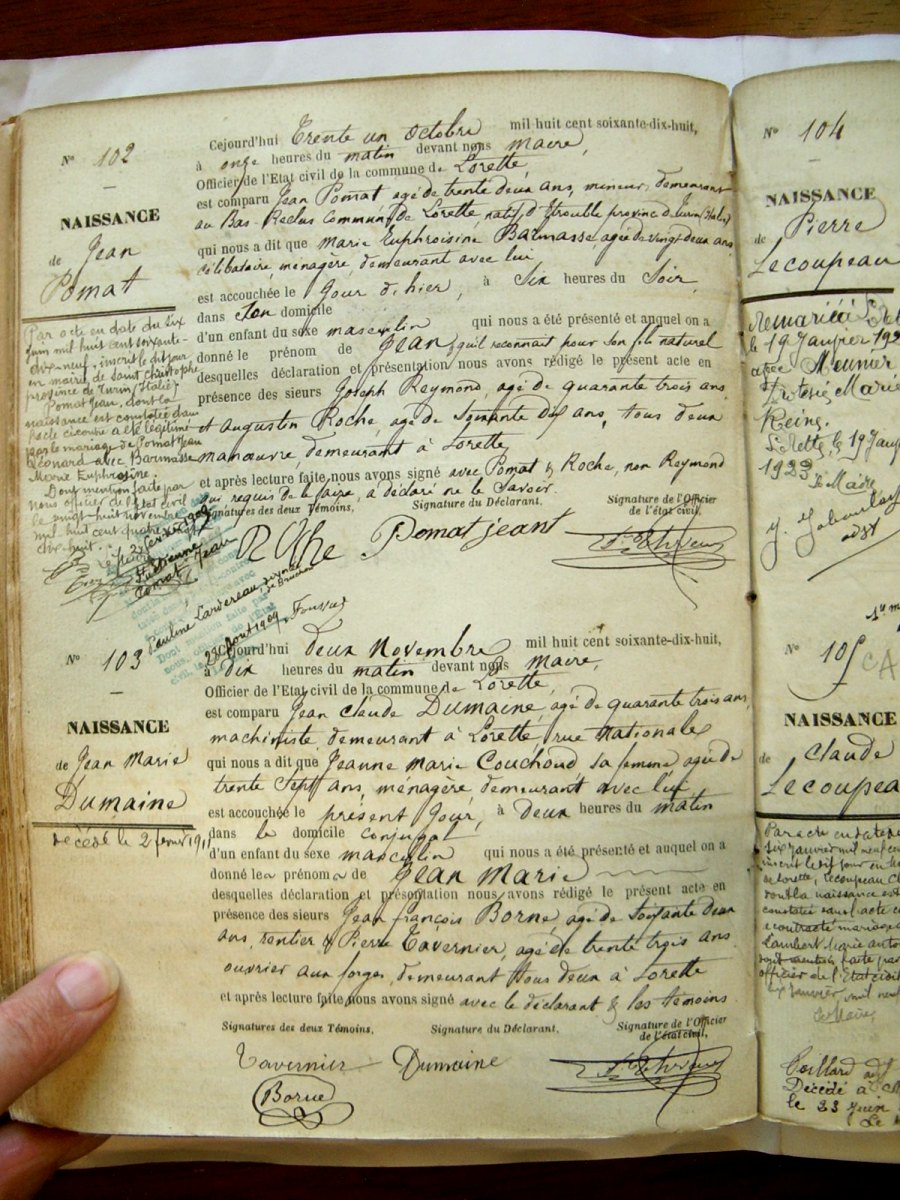 N° 102
NAISSANCE
de Jean
Pomat
Par acte en date du six
juin mil huit cent soixante-
dix-neuf, inscrit le dit jour
en mairie de Saint Christophe
province de Turin (Italie)
Pomat Jean, dont la
naissance est constatée dans
l'acte ci-contre a été légitimé
par le mariage de Pomat Jean
Léonard avec Barmasse
Marie Euphrosine.
Dont mention faite par
nous officier de l'état civil
le vingt-huit novembre
mil huit cent quatre-vingt
dix-huit.
Cejourd'hui Trente un Octobre mil huit cent soixante-dix-huit,
à onze heures du matin devant nous Maire,
Officier de l'Etat civil de la commune de Lorette,
est comparu Jean Pomat agé de trente deux ans, mineur, demeurant
au Bas-Reclus Commune de Lorette natif d'Etrouble province de Turin (Italie)
qui nous a dit que Marie Euphroisine Barmasse, agée de vingt deux ans
célibataire, ménagère, demeurant avec lui
est accouchée le Jour d'hier, à Six heures du Soir,
dans Son domicile
d'un enfant du sexe masculin qui nous a été présenté et auquel on a
donné le prénom de Jean, qu'il reconnait pour son fils naturel
desquelles déclaration et présentation nous avons rédigé le présent acte en
présence des sieurs Joseph Reymond, agé de quarante trois ans
et Augustin Roche, agé de Soixante dix ans, tous deux
manœuvre, demeurant à Lorette
et après lecture faite, nous avons signé avec Pomat & Roche, non Reymond
qui requis de le faire, a déclaré ne le Savoir.
Signatures des deux Témoins, Signature du Déclarant. Signature de l'Officier
de l'état civil,
Pomat jeant
Pomat Jean
Pauline Lardereau
23 Aout 1909
N° 103
NAISSANCE
de Jean Marie
Dumaine
décédé le 2 février 1911
Cejourd'hui deux Novembre mil huit cent soixante-dix-huit,
à dix heures du matin devant nous Maire,
Officier de l'Etat civil de la commune de Lorette,
est comparu Jean Claude Dumaine, agé de quarante trois ans,
machiniste, demeurant à Lorette, rue Nationale
qui nous a dit que Jeanne Marie Couchoud sa femme agée de
trente Sept ans, ménagère demeurant avec lui,
est accouchée le présent Jour, à Deux heures du matin
dans le domicile conjugal
d'un enfant du sexe masculin qui nous a été présenté et auquel on a
donné les prénoms de Jean Marie
desquelles déclaration et présentation nous avons rédigé le présent acte en
présence des sieurs Jean François Borne, agé de Soixante deux
ans, rentier & Pierre Tavernier, agé de trente trois ans
ouvrier aux forges, demeurant tous deux à Lorette
et après lecture faite, nous avons signé avec le déclarant & les témoins
Signatures des deux Témoins, Signature du Déclarant. Signature de l'Officier
de l'état civil,
Tavernier Dumaine
Borne
N° 104
NAISSANCE
de Pierre
Lecoupeau
Remarié à
le 19 Janvier 192
avec Meunier
Marie
Reine.
Lorette, le 19 Janv
1923
Le Maire
N° 105
NAISSANCE
de Claude
Lecoupea
Par acte en date du
six janvier mil neuf cent
inscrit le dit jour en
de Lorette, Lecoupeau Cl
dont la naissance est
constatée
a contracté mariage
Lambert Marie
dont mention faite par
officier de l'état civil
six janvier, mil neuf
Le Maire,
Décédé à
le 23 Juin